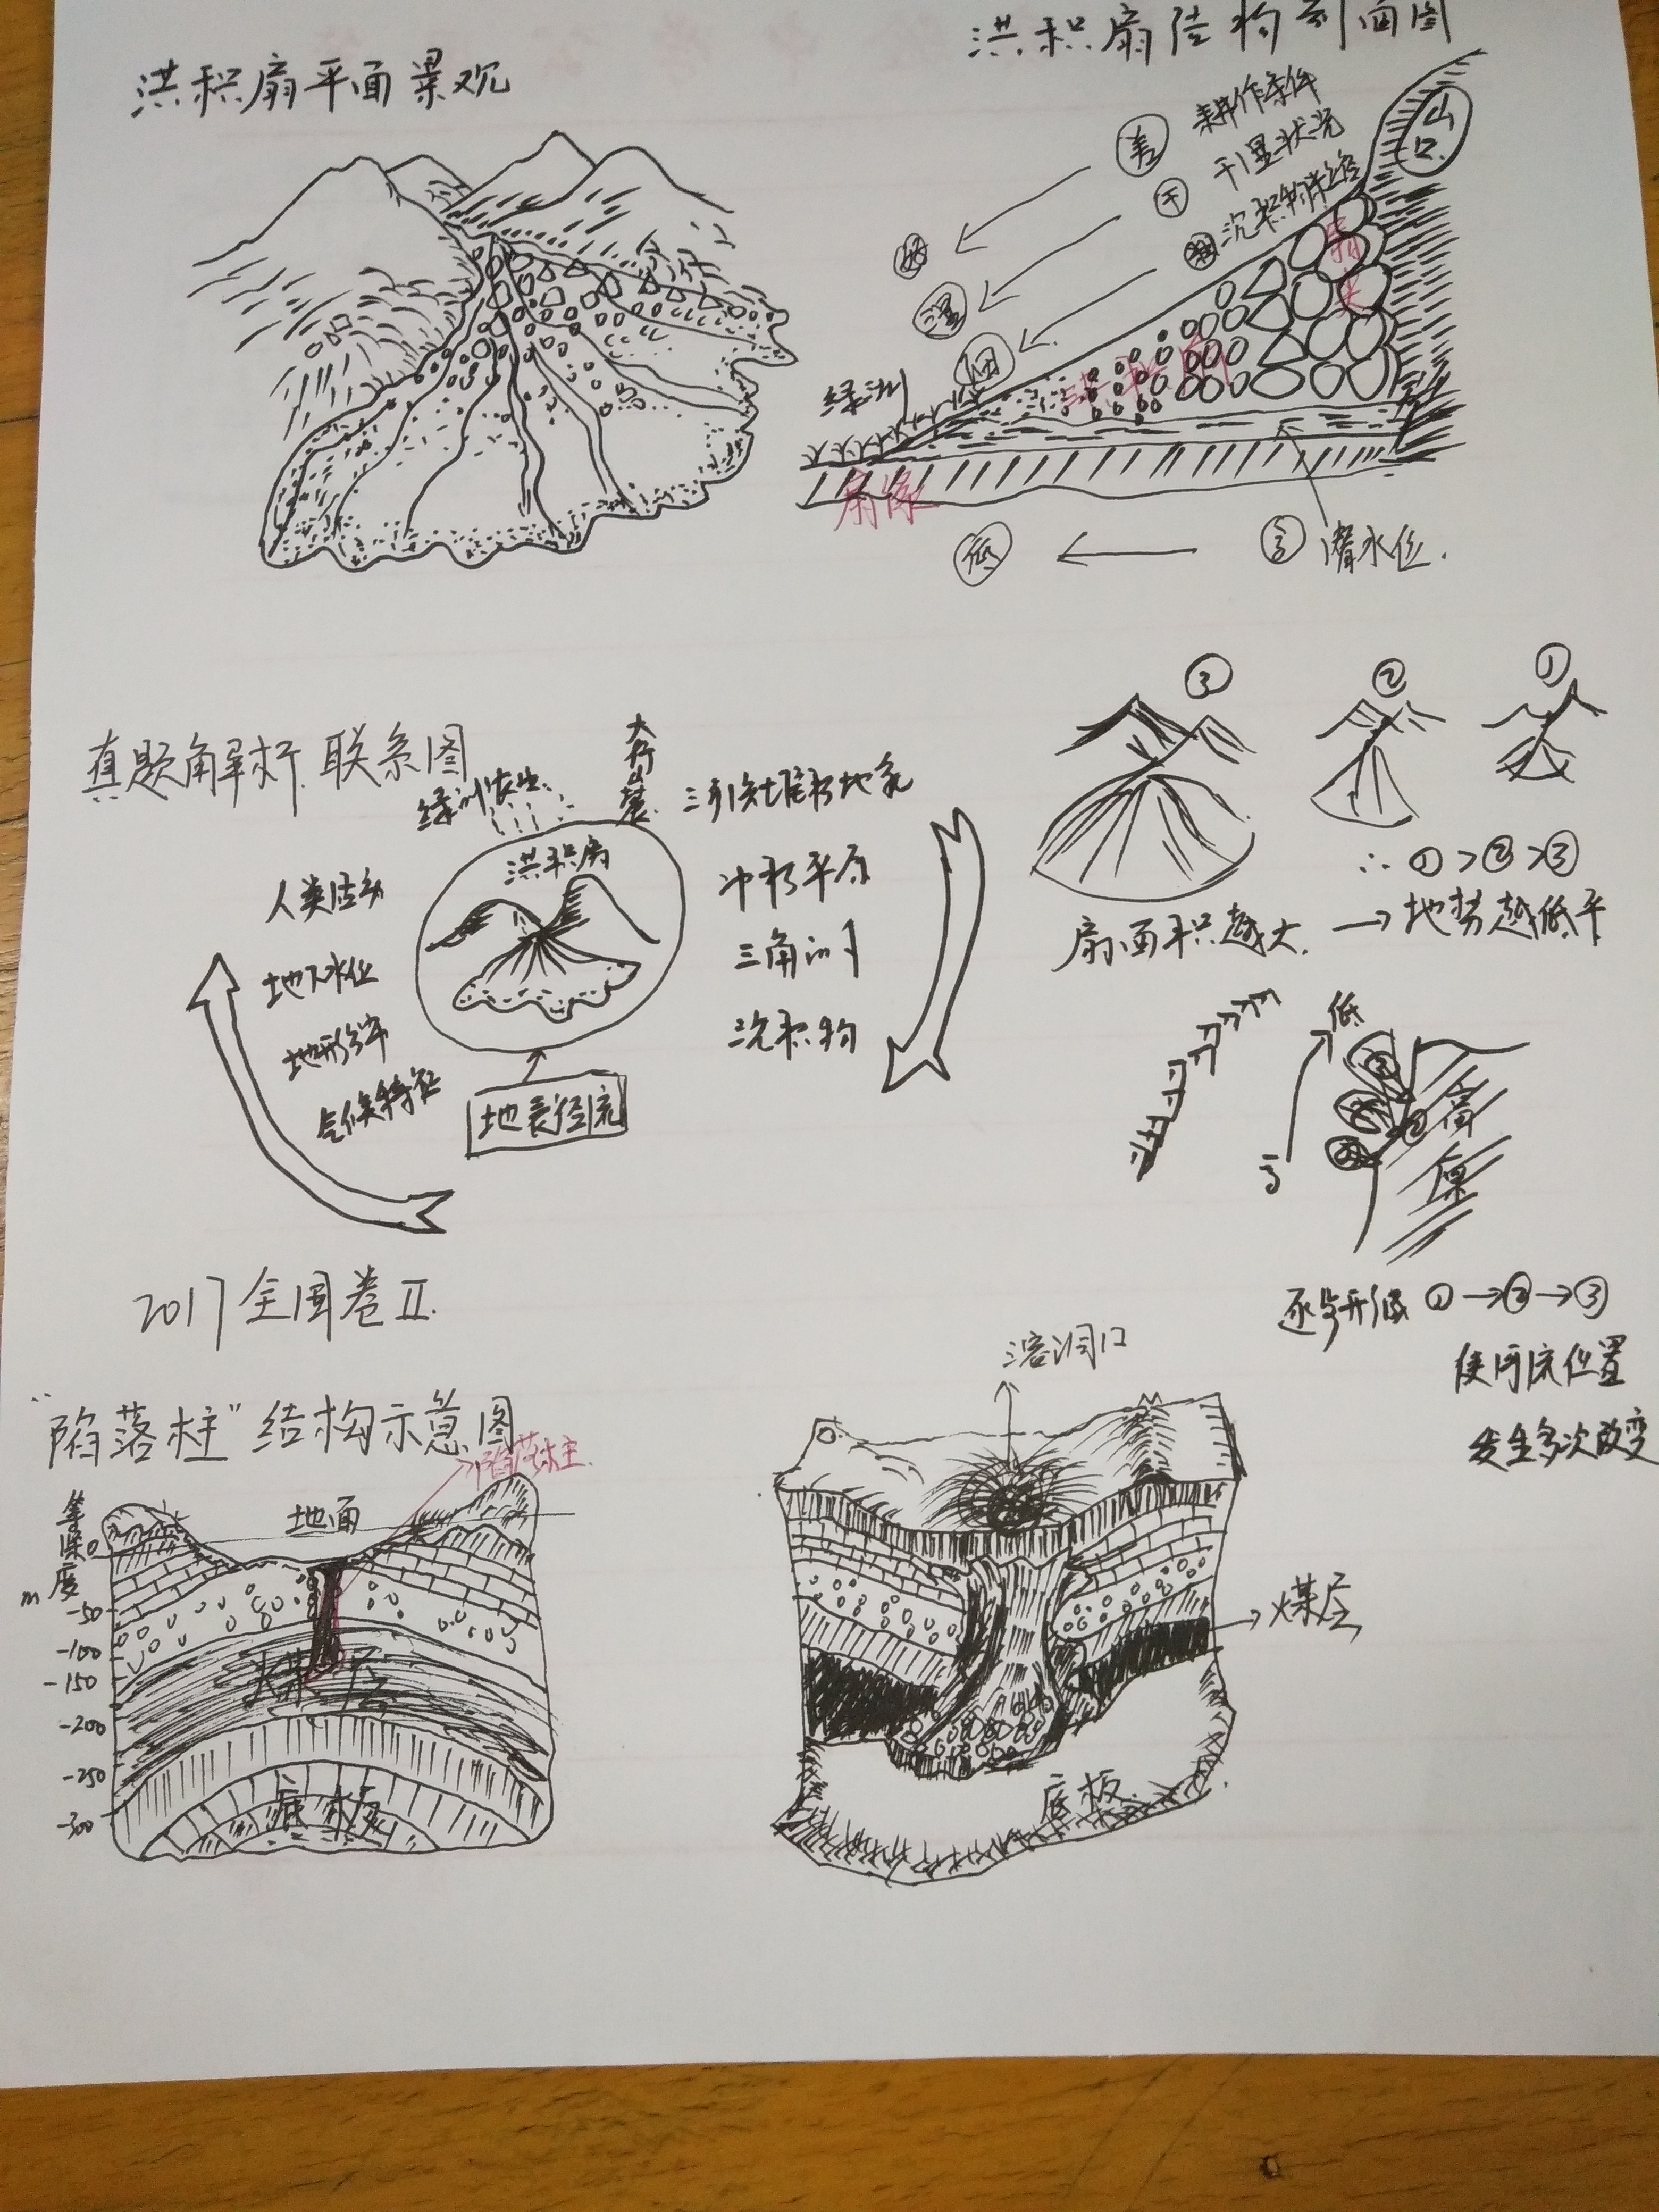 洪积扇平面景观
洪积扇结构剖面图
山口
差 耕作条件
干 干湿状况
粗 沉积物粗细
好
湿
细
扇顶
洪积扇
绿洲
扇缘
低 ← 高 潜水位.
真题解析.联系图
绿洲农业
太行山麓
洪积扇
人类活动
地下水位
地形分布
气候特征
地表径流
河流堆积地貌
冲积平原
三角洲
沉积物
③ ② ①
∴ ①>②>③
扇面积越大. → 地势越低平
低
高
高原
逐步形成 ①→②→③
使河流位置
发生多次改变
2017全国卷II.
"陷落柱"结构示意图
陷落柱
地面
等深度
m
0
-50
-100
-150
-200
-250
-300
煤层
底板
溶洞口
煤层
底板